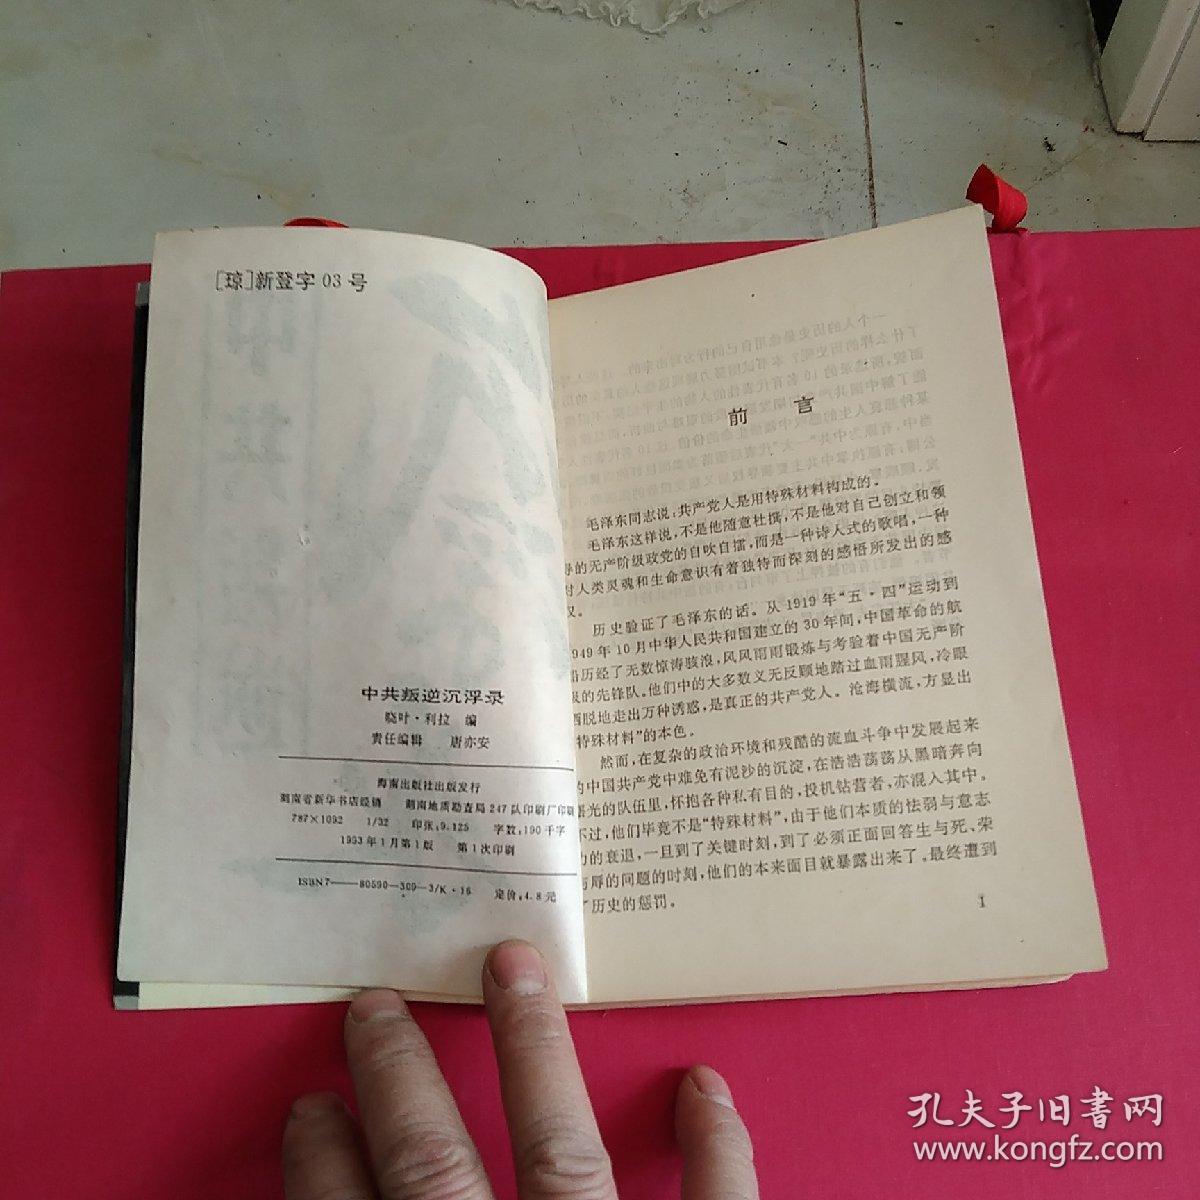 [琼]新登字 03 号
中共叛逆沉浮录
晓叶·利拉 编
责任编辑 唐亦安
海南出版社出版发行
湖南省新华书店经销 湖南地质勘查局 247 队印刷厂印刷
787×1092 1/32 印张:9.125 字数:190 千字
1993 年 1 月第 1 版 第 1 次印刷
ISBN7—80590—309—3/K·16 定价:4.8 元
前 言
毛泽东同志说:共产党人是用特殊材料构成的.
毛泽东这样说,不是他随意杜撰,不是他对自己创立和领
导的无产阶级政党的自吹自擂,而是一种诗人式的歌唱,一种
对人类灵魂和生命意识有着独特而深刻的感悟所发出的感
叹。
历史验证了毛泽东的话。从 1919 年“五·四”运动到
1949 年 10 月中华人民共和国建立的 30 年间,中国革命的航
船历经了无数惊涛骇浪,风风雨雨锻炼与考验着中国无产阶
级的先锋队。他们中的大多数义无反顾地踏过血雨腥风,冷眼
洒脱地走出万种诱惑,是真正的共产党人。沧海横流,方显出
“特殊材料”的本色。
然而,在复杂的政治环境和残酷的流血斗争中发展起来
的中国共产党中难免有泥沙的沉淀,在浩浩荡荡从黑暗奔向
曙光的队伍里,怀抱各种私有目的,投机钻营者,亦混入其中。
不过,他们毕竟不是“特殊材料”,由于他们本质的怯弱与意志
力的衰退,一旦到了关键时刻,到了必须正面回答生与死、荣
与辱的问题的时刻,他们的本来面目就暴露出来了。最终遭到
了历史的惩罚。
1
孔夫子旧書网
www.kongfz.com